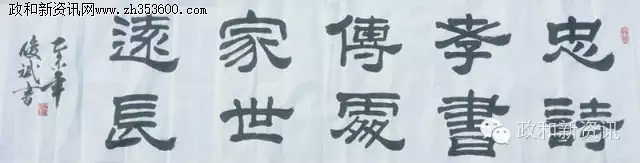 政和新资讯
www.zh353600.com
忠孝傳家遠
詩書處世長
乙未年
俊斌書
政和新资讯